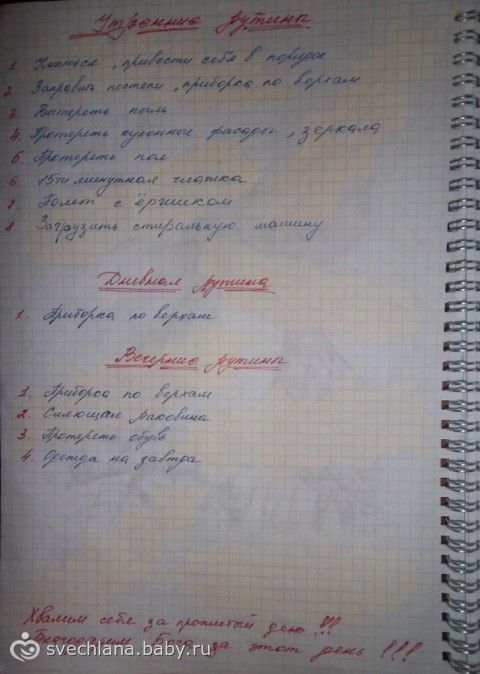 Утренние рутины
1 Умыться, привести себя в порядок
2 Заправить постели, приборка по верхам
3. Вытереть пыль
4. Протереть кухонные фасады, зеркала
5 Протереть пол
6 15ти минутная глажка
7. Полет с ёршиком
8. Загрузить стиральную машину
Дневная рутина
1. Приборка по верхам
Вечерние рутины
1. Приборка по верхам
2. Сияющая раковина
3 Протереть обувь
4. Одежда на завтра
Хвалим себя за прожитый день!!!
Благодарим Бога за этот день!!!
svechlana.baby.ru